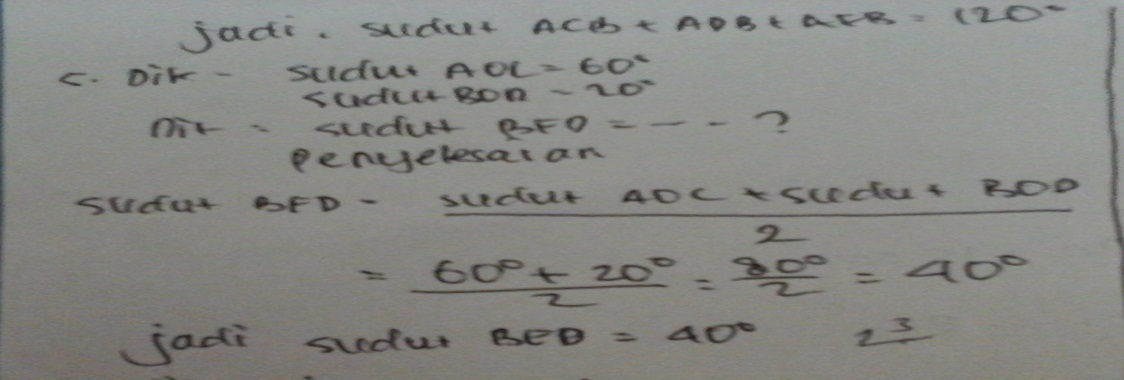 jadi. sudut ACB + ADB + AEB = 120°
c. Dik - sudut AOC = 60°
sudut BOD = 20°
Dit = sudut BFD = --- ?
Penyelesaian
sudut BFD = sudut AOC + sudut BOD
2
= 60° + 20° = 80° = 40°
2 2
jadi sudut BED = 40° 2 3